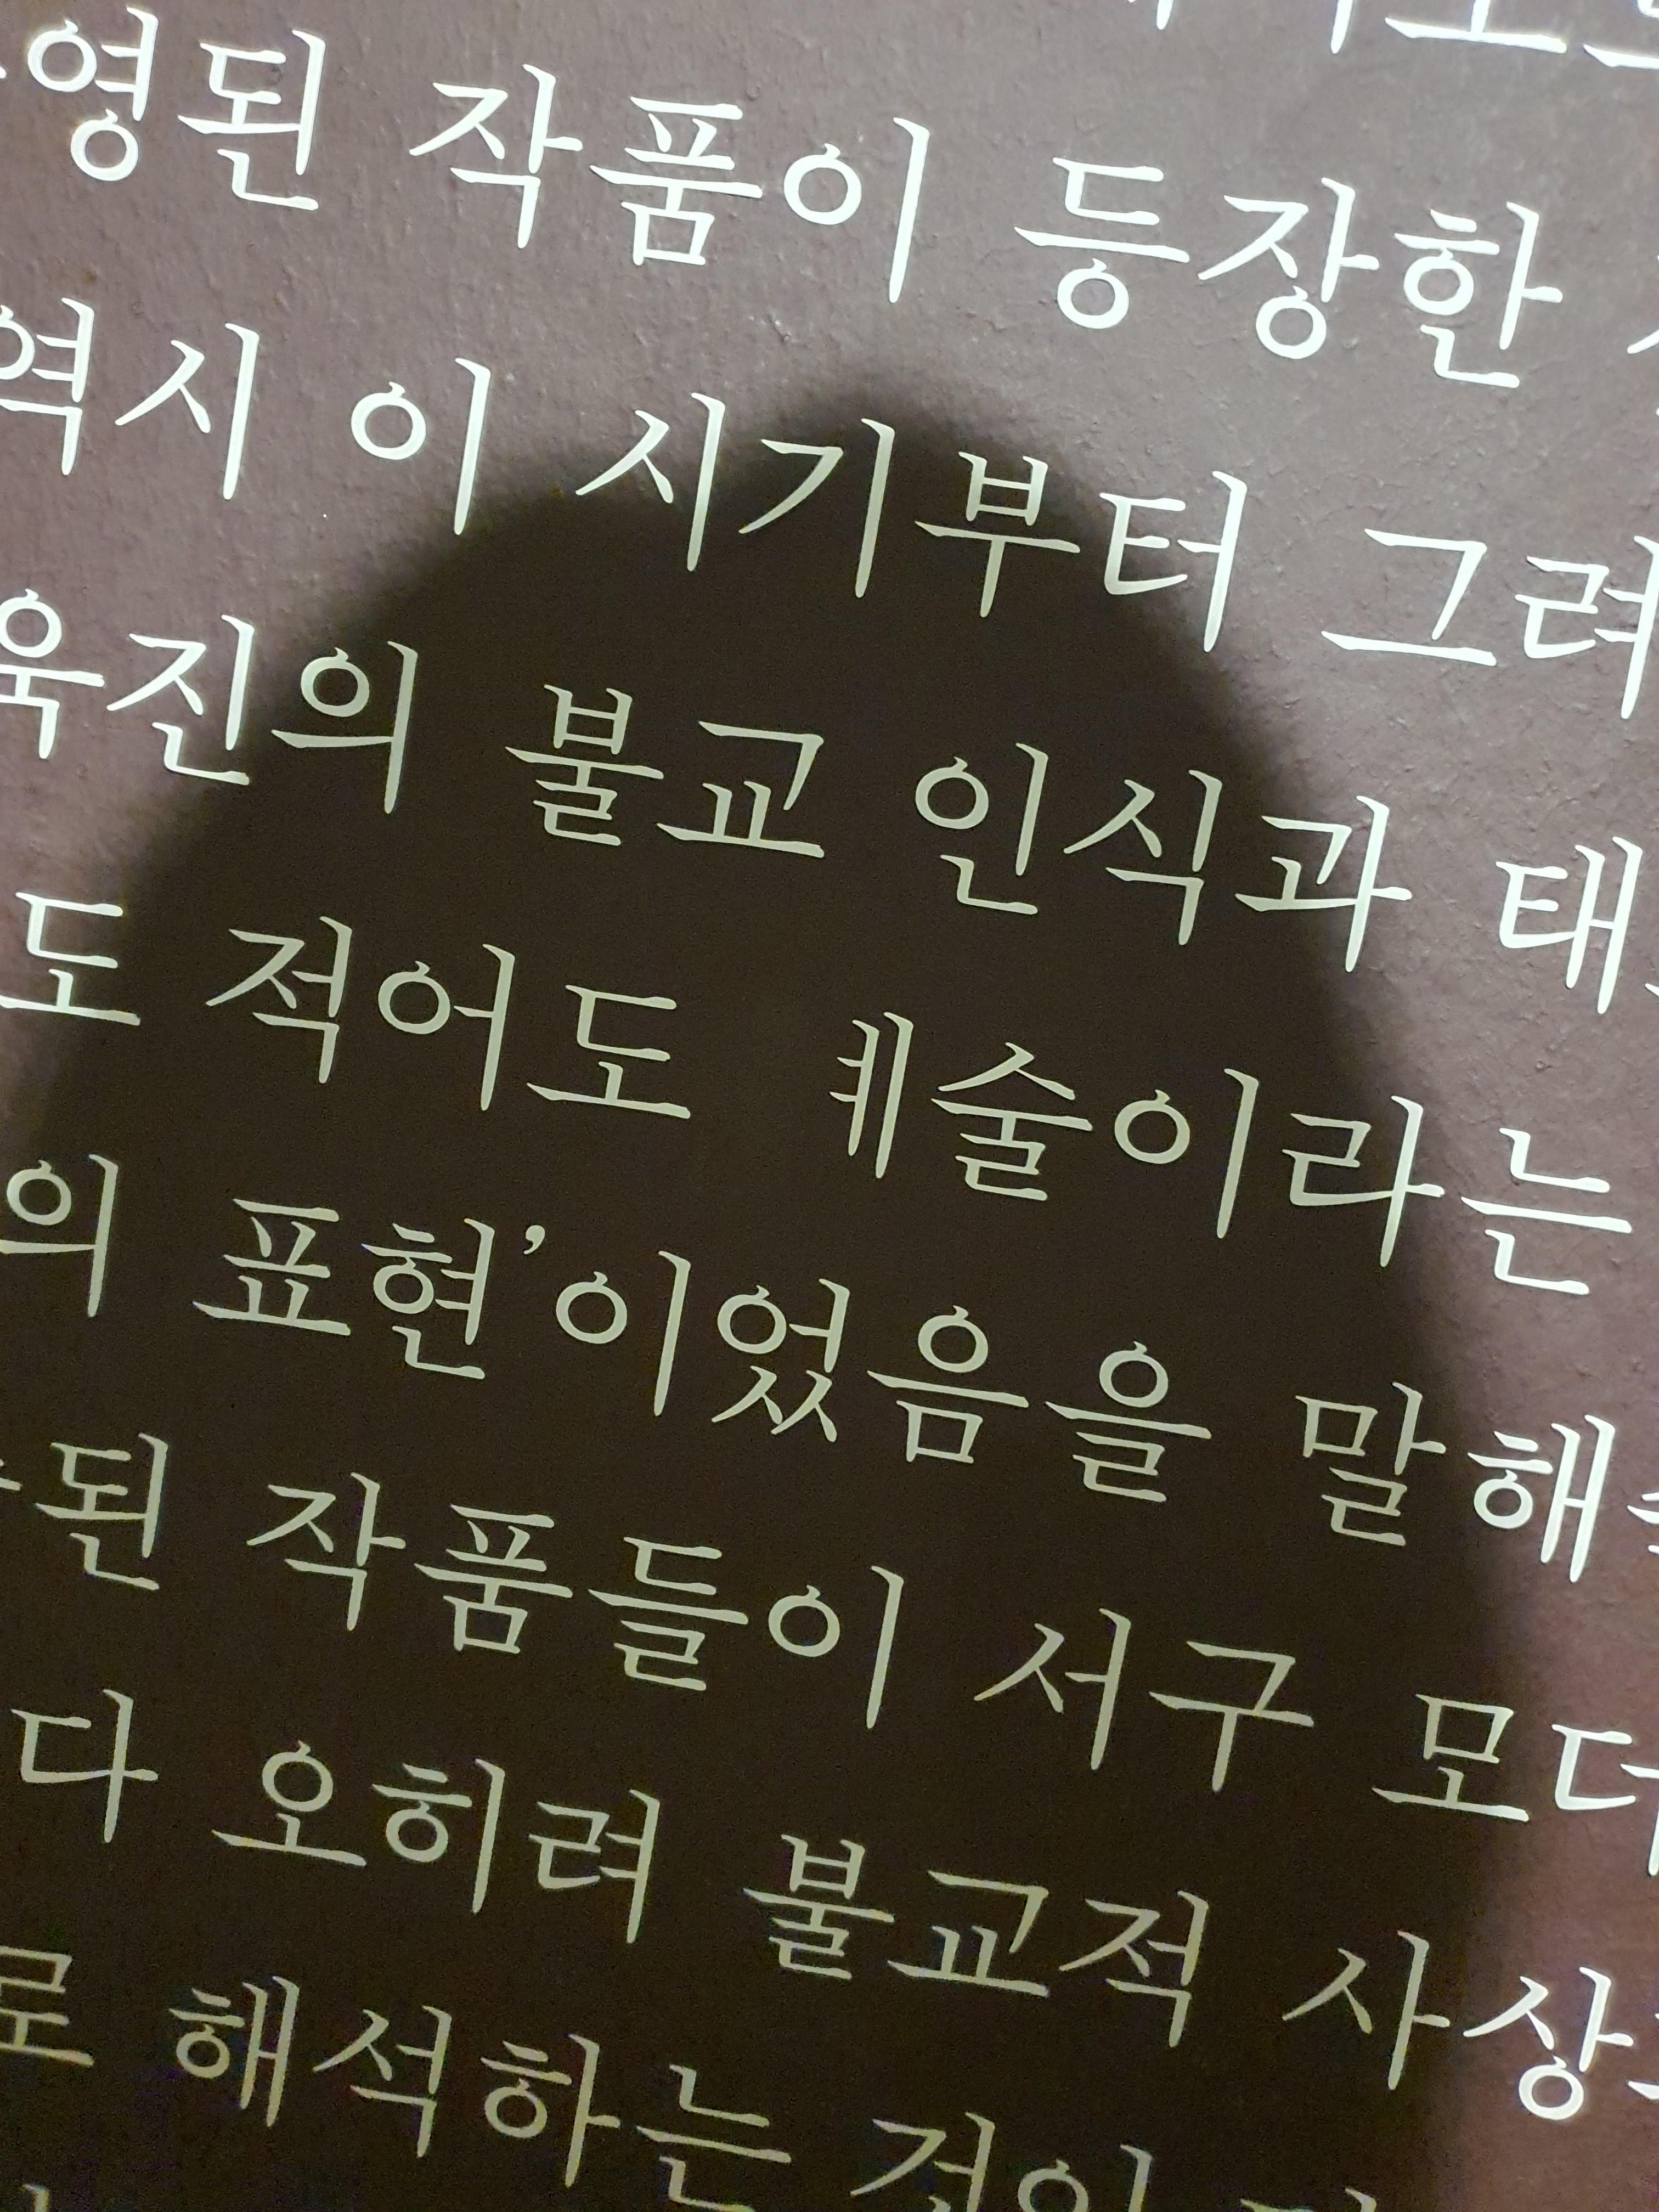 영된 작품이 등장한
역시 이 시기부터 그려
욱진의 불교 인식과 태
도 적어도 ㅖ술이라는
의 표현’이었음을 말해
된 작품들이 서구 모더
다 오히려 불교적 사상
로 해석하는 것이